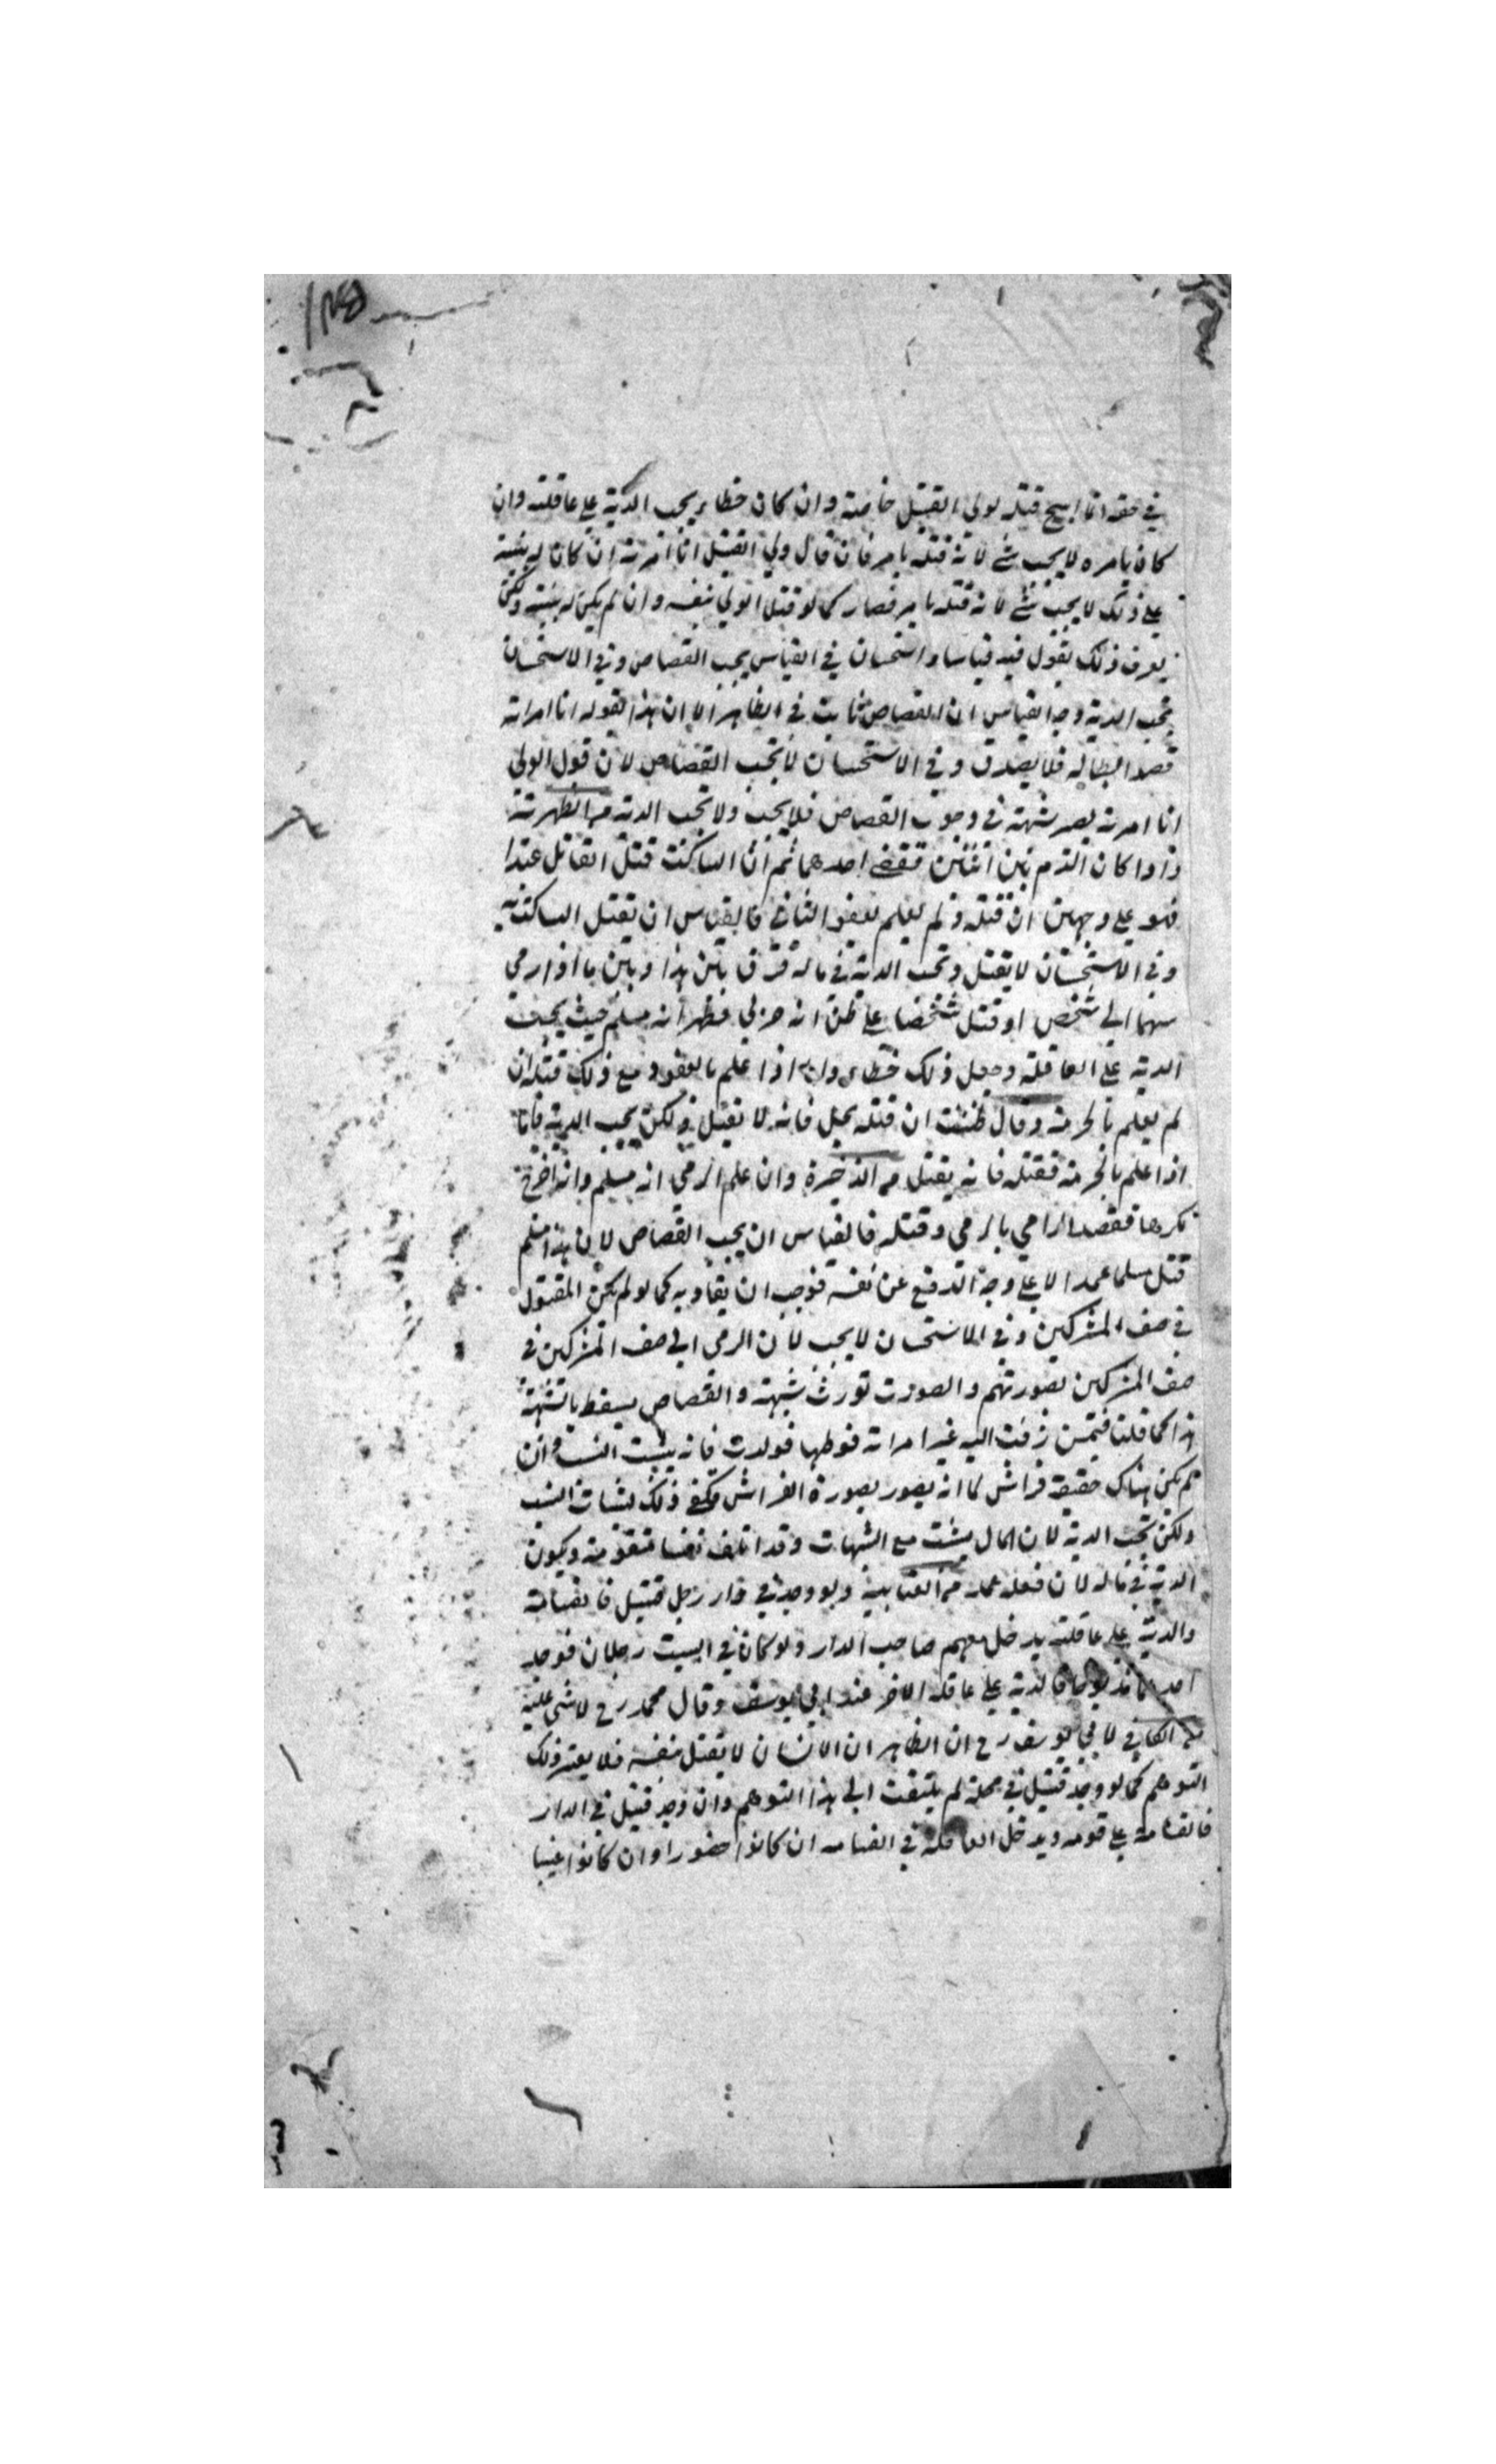 في حقه انما ابيح قتله لولي القتيل خاصة وان كان خطاء يجب الدية على عاقلته وان
كان بامره لا يجب شئ لانه قتله بامر فان قال ولي القتيل انا امرته ان كان له بينة
على ذلك لا يجب شئ لانه قتله بامر فصار كما لو قتل الولي بنفسه وان لم يكن له بينة ولكن
يعرف ذلك بقول فيه قياسا واستحسان في القياس يجب القصاص وفي الاستحسان
يجب الدية وجه القياس ان القصاص ثابت في الظاهر الا ان هذا بقوله انا امرته
قصد ابطاله فلا يصدق وفي الاستحسان لا تجب القصاص لان قول الولي
انا امرته يصر شبهة في وجوب القصاص فلا يجب ولا تجب الدية من الظهرية
واذا كان الدم بين اثنين فعفى احدهما ثم ان الساكت قتل القاتل عمدا
فهو على وجهين ان قتله ولم يعلم بعفو الثاني فالقياس ان يقتل الساكت به
وفي الاستحسان لا يقتل وتجب الدية في ماله فرق بين هذا وبين ما اذا رمى
سهما الى شخص او قتل شخصا على ظن انه حربي فظهر انه مسلم حيث يجب
الدية على العاقلة وجعل ذلك خطاء واما اذا علم بالعفو ومع ذلك قتله ان
لم يعلم بالحرمة وقال ظننت ان قتله يحل فانه لا يقتل ولكن يجب الدية فاما
اذا علم بالحرمة فقتله فانه يقتل من الذخيرة وان علم الرمي انه مسلم وانه اخرج
كرها فقصد الرامي بالرمي وقتله فالقياس ان يجب القصاص لان هذا مسلم
قتل مسلما عمدا لا على وجه الدفع عن نفسه فوجب ان يقاد به كما لو لم يكن المقتول
في صف المشركين وفي الاستحسان لا يجب لان الرمي الى صف المشركين في
صف المشركين بصورتهم والصورت تورث شبهة والقصاص يسقط بالشبهة
هذا كما قلنا فيمن زفت اليه غير امراته فوطها فولدت فانه يثبت النسب وان
لم يكن هناك حقيقة فراش لما انه يصور بصورة الفراش فكفى ذلك لثبات النسب
ولكن تجب الدية لان المال يثبت مع الشبهات وقد اتلف نفسا متقومة ويكون
الدية في ماله لان فعله عمد من العتابية ولو وجد في دار رجل قتيل فالقسامة
والدية على عاقلته يدخل معهم صاحب الدار ولو كان في البيت رجلان فوجد
احدهما مذبوحا فالدية على عاقلة الاخر عند ابي يوسف وقال محمد رح لا شئ عليه
من الكافي لابي يوسف رح ان الظاهر ان الانسان لا يقتل نفسه فلا يعتبر ذلك
التوهم كما لو وجد قتيل في محلة لم يلتفت الى هذا التوهم وان وجد قتيل في الدار
فالقسامة على قومه ويدخل العاقلة في القسامه ان كانوا حضورا وان كانوا غيبا